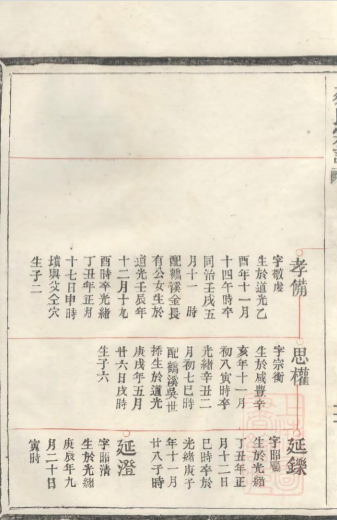 孝備
字敬虔
生於道光乙
酉年十一月
十四午時卒
同治壬戌五
月十一 時
配鶴溪金長
有公女生於
道光壬辰年
十二月十九
酉時卒光緒
丁丑年正月
十七日申時
墳與父仝穴
生子二
思權
字宗衡
生於咸豐辛
亥年十一月
初八寅時卒
光緒辛丑二
月初七巳時
配鶴溪吳世
揉生於道光
庚戌年五月
廿六日戌時
生子六
延鑠
字部
生於光緒
丁丑年正
月十二日
巳時卒於
光緒庚子
年十一月
廿八子時
延澄
字部清
生於光緒
庚辰年九
月二十日
寅時